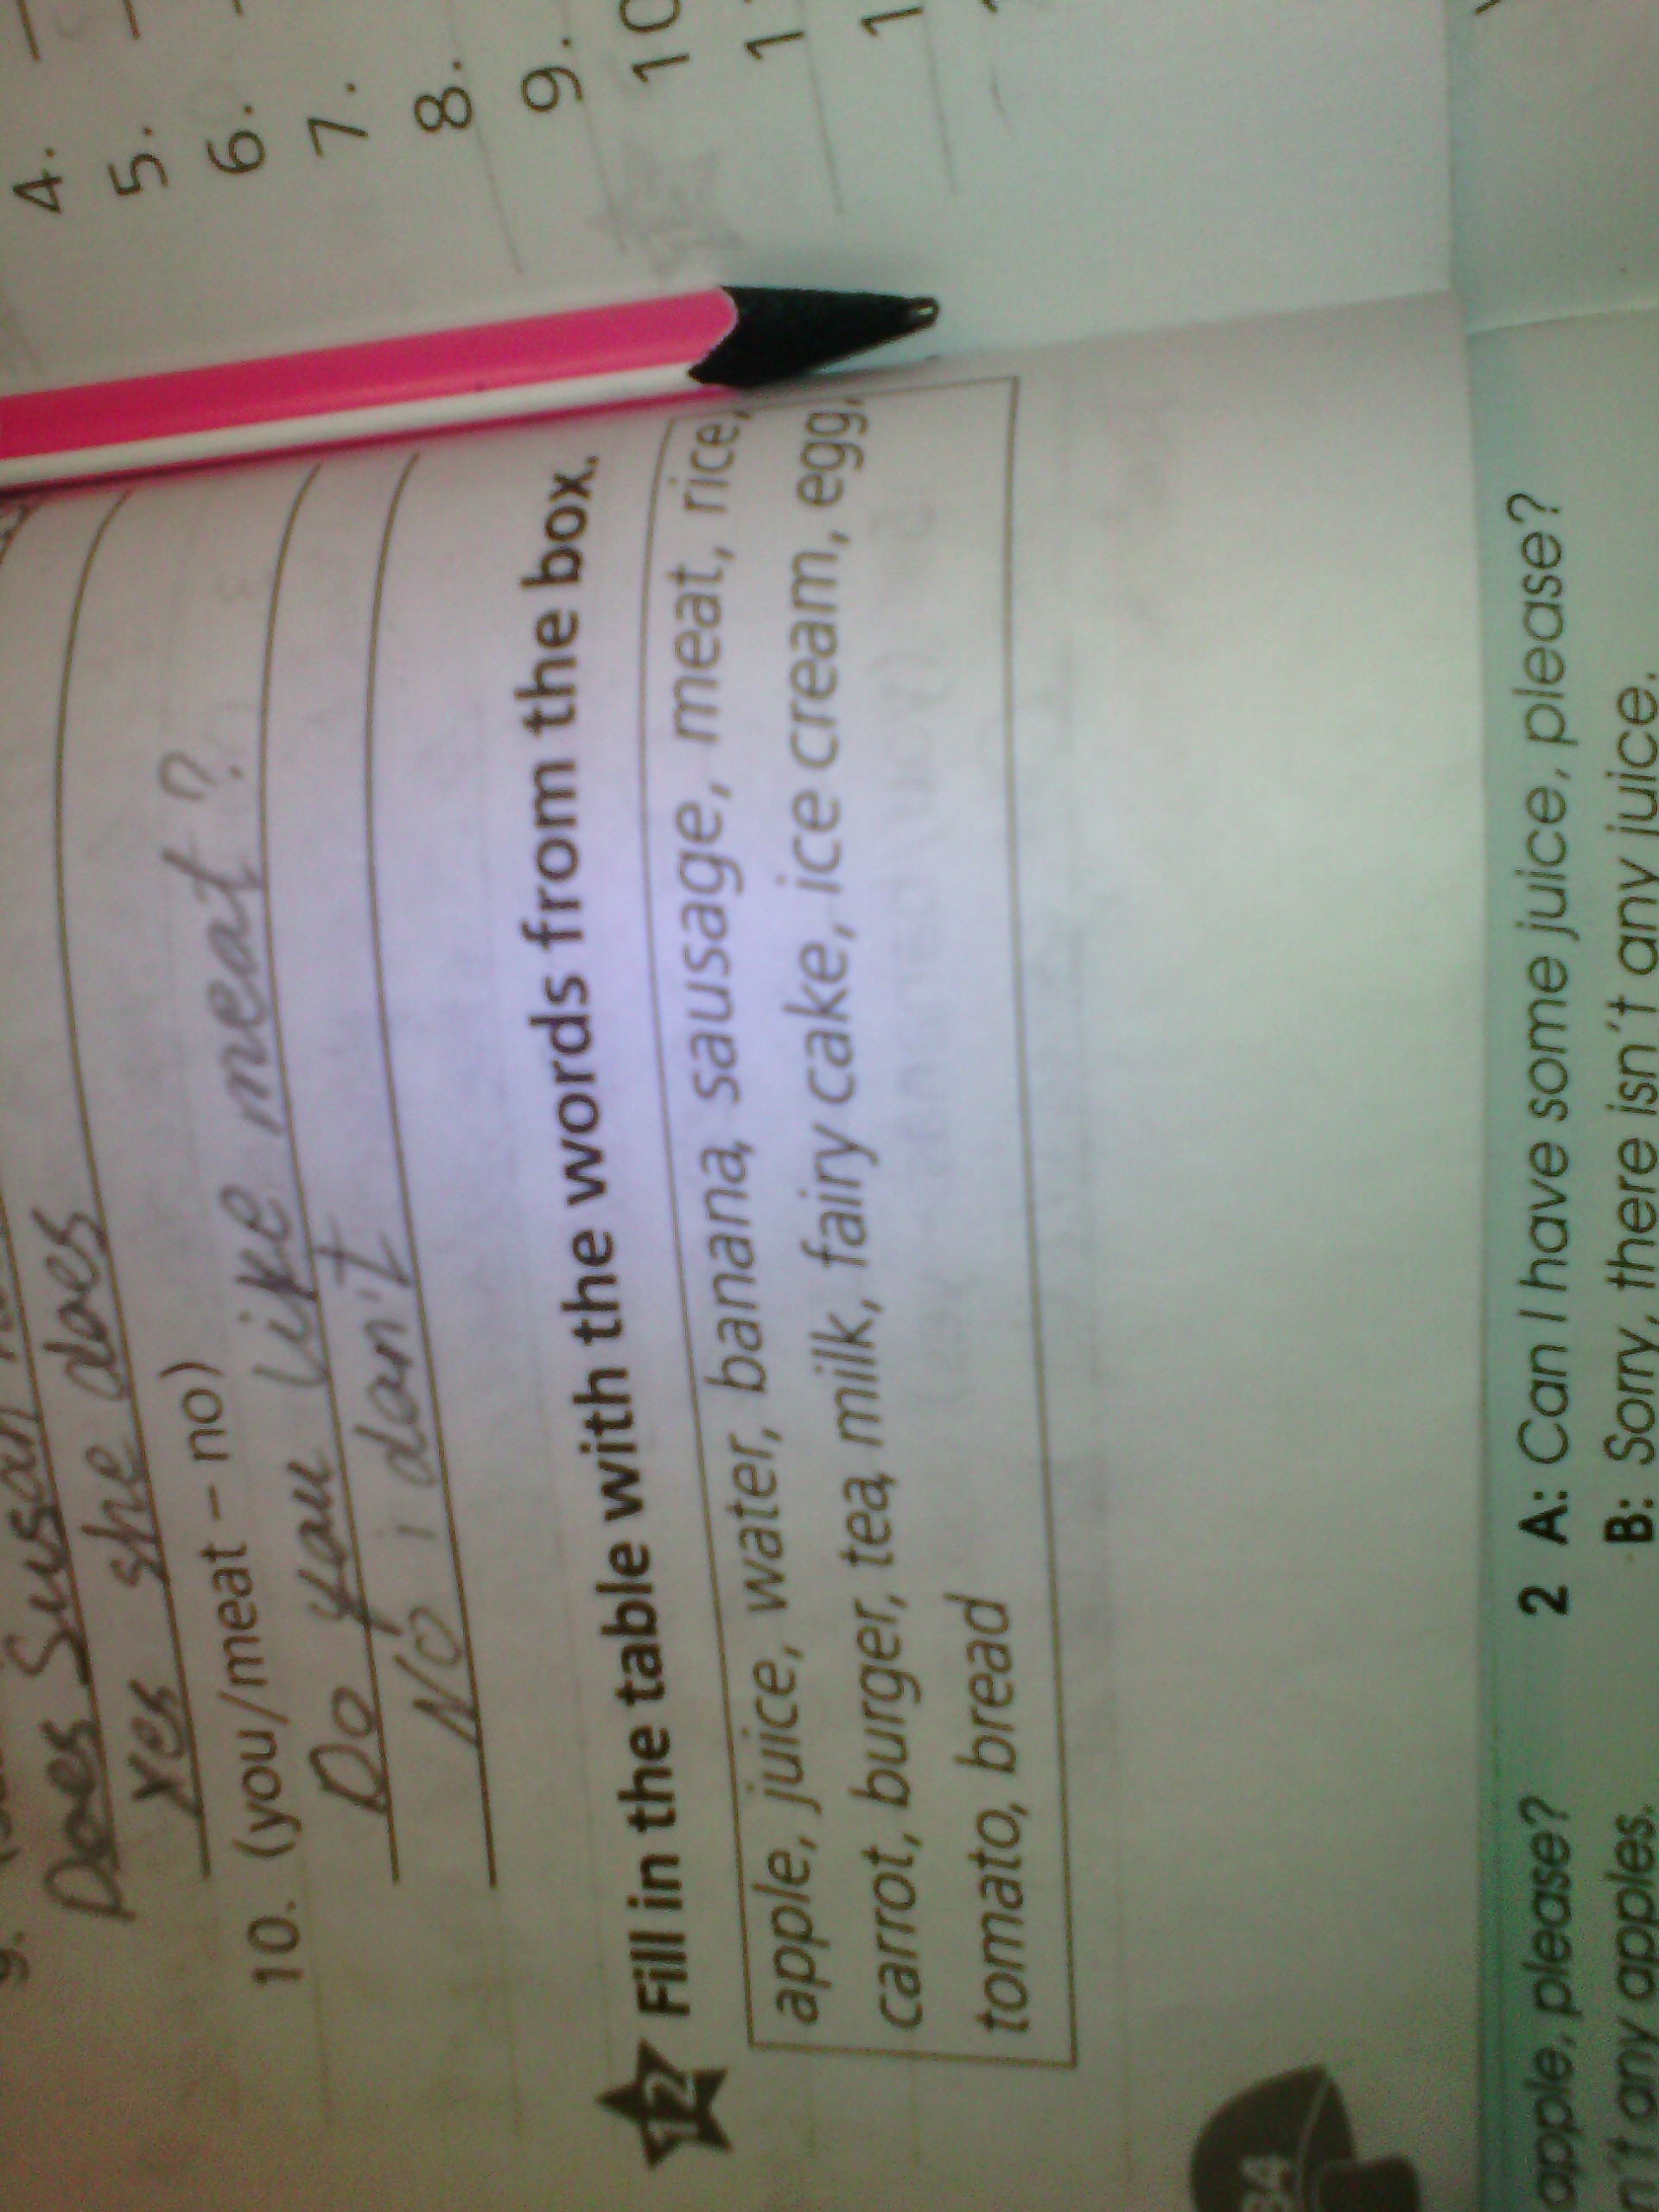 Does Susan
Yes she does
10. (you/meat – no)
Do you like meat?
No i don't
12 Fill in the table with the words from the box.
apple, juice, water, banana, sausage, meat, rice,
carrot, burger, tea, milk, fairy cake, ice cream, egg,
tomato, bread
4.
5.
6.
7.
8.
9.
apple, please?
any apples.
2 A: Can I have some juice, please?
B: Sorry, there isn't any juice.